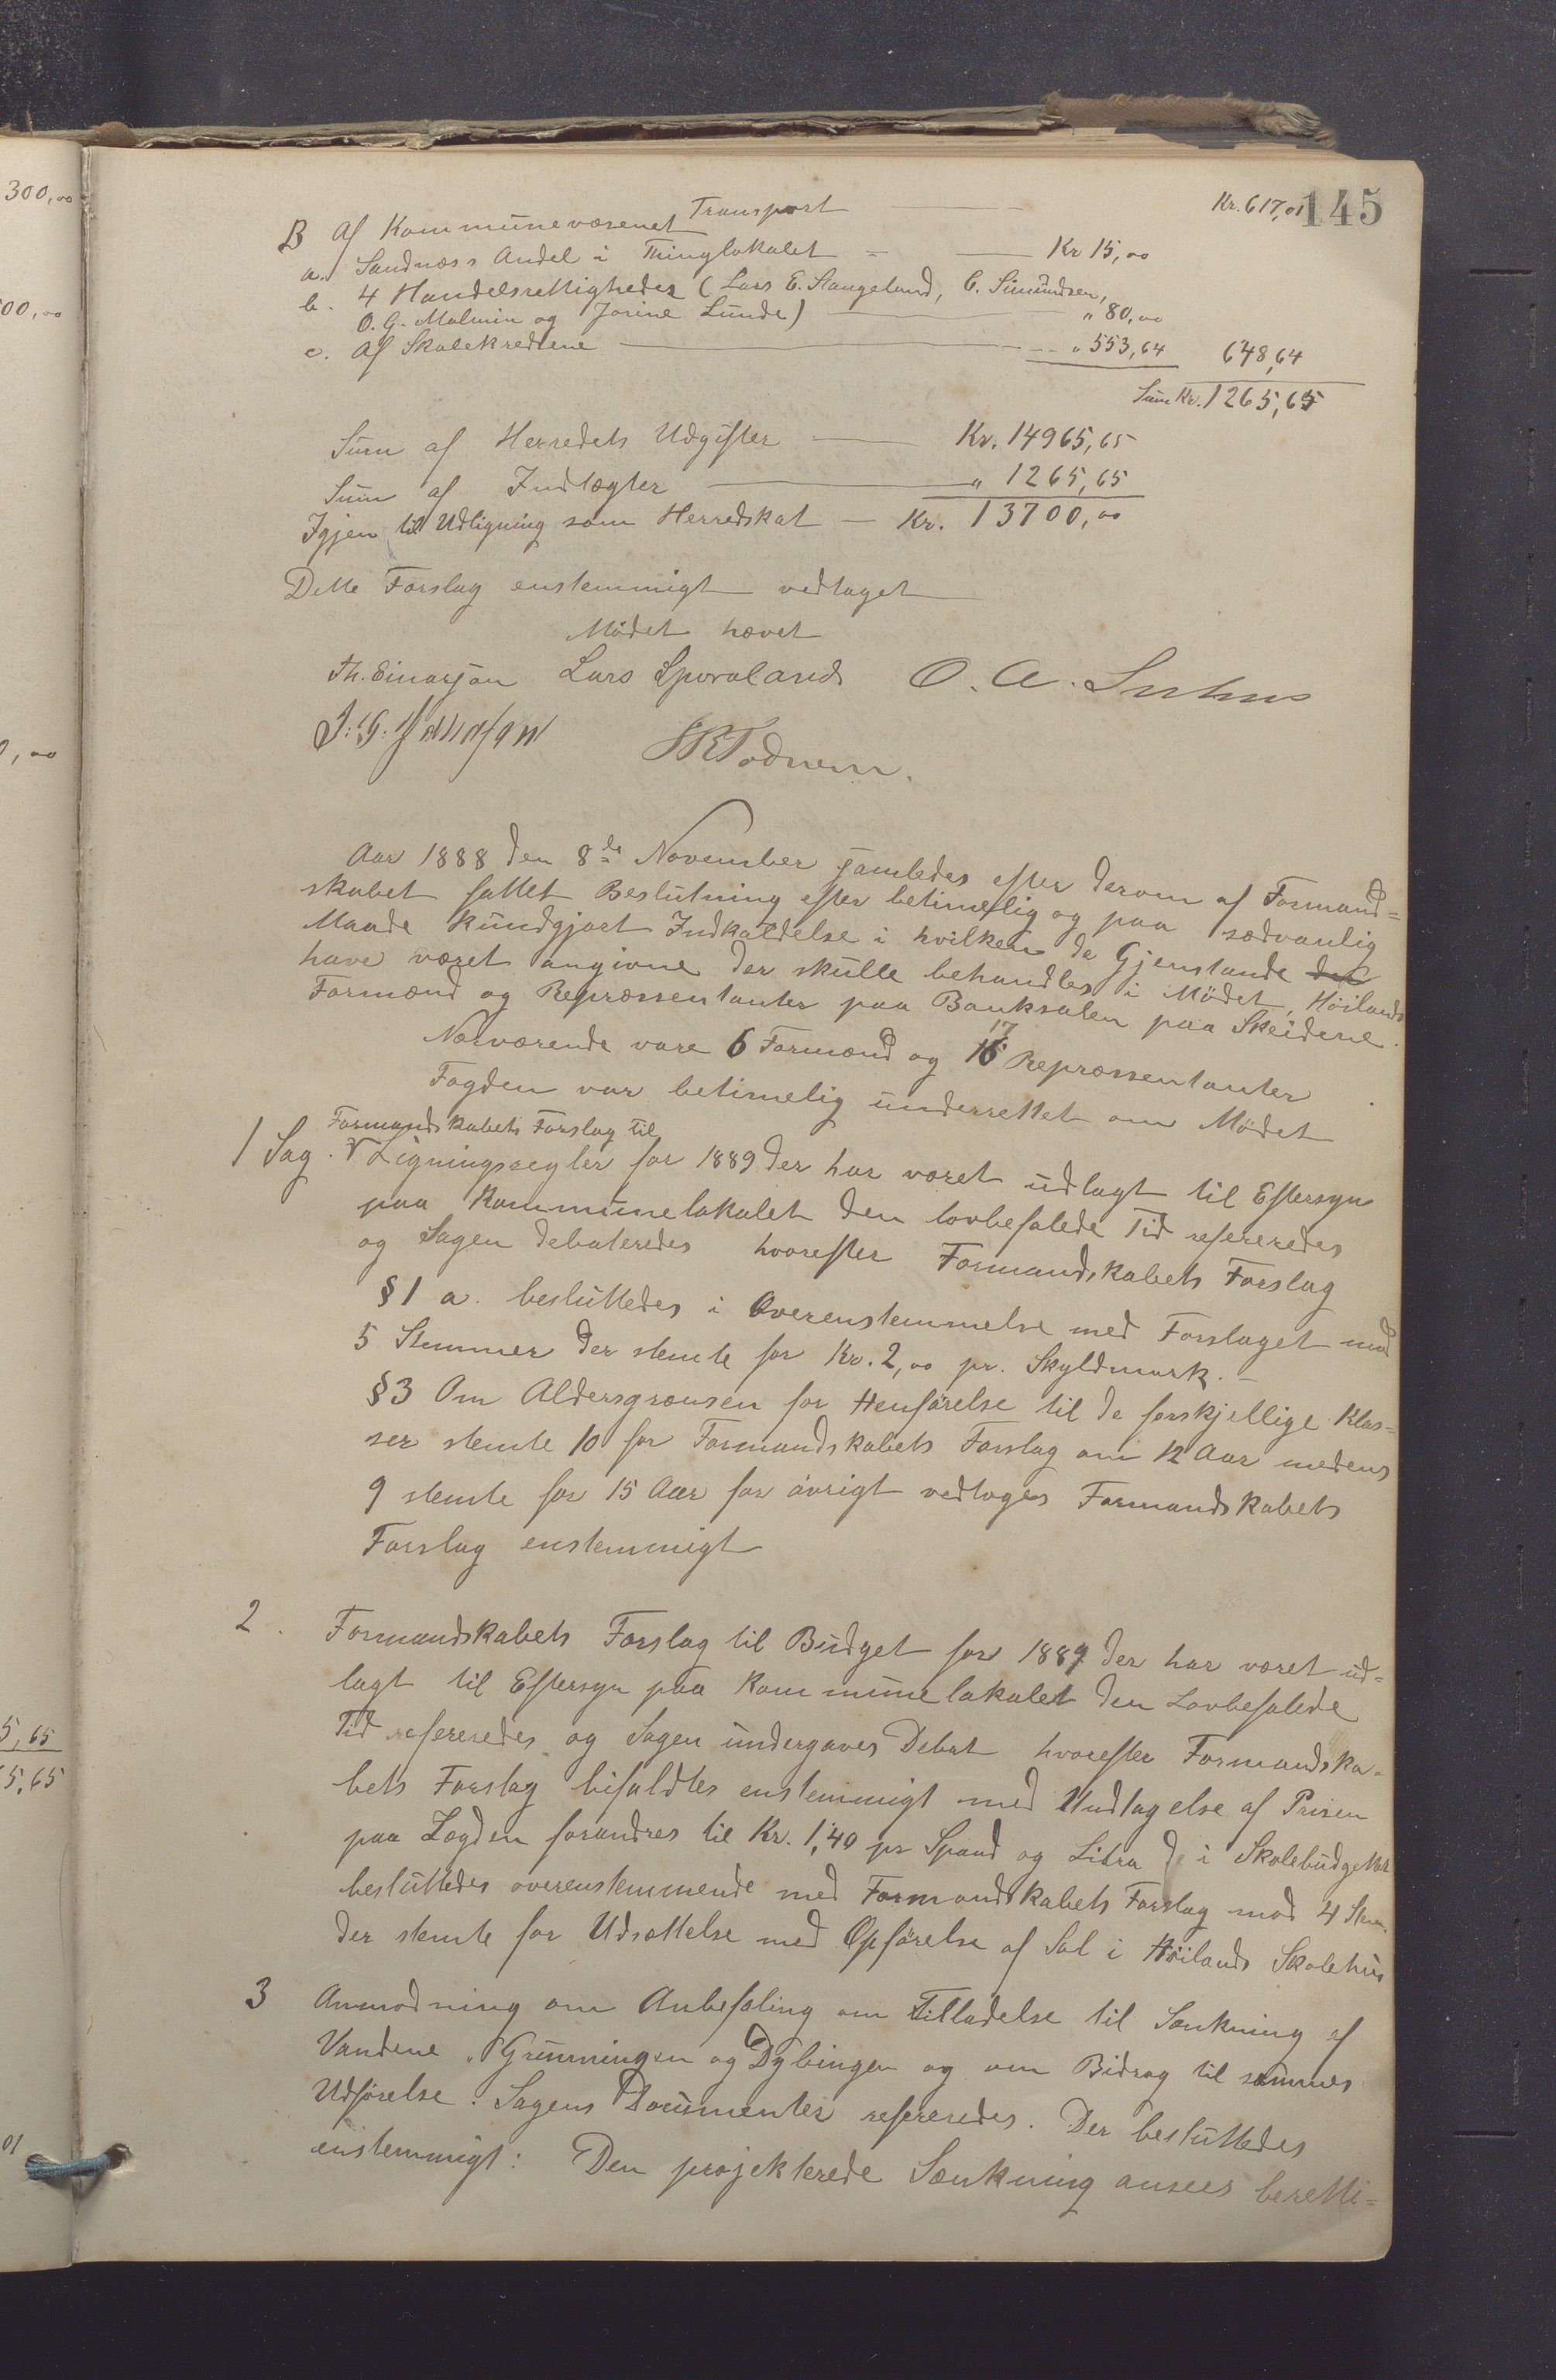 300,00
00,00
0,00
5,65
5,65
01
145
Transport Kr. 617,01
B Af Kommunevæsenet
a. Sandnæss Andel i Thinglokalet Kr 15,00
b. 4 Handelsrettigheder (Lars E. Stangeland, C. Simundsen,
O. G. Malmin og Jorine Lunde) " 80,00
c. Af Skolekredsene " 553,64 648,64
Sum Kr. 1265,65
Sum af Herredets Udgifter Kr. 14965,65
Sum af Indtægter " 1265,65
Igjen til Udligning som Herredskat Kr. 13700,00
Dette Forslag enstemmigt vedtaget
Mödet hævet
Th. Einarsen Lars Sporaland O. A.
J. G.
Todnem.
Aar 1888 den 8de November samledes efter derom af Formand=
skabet fattet Beslutning efter betimelig og paa sædvanlig
Maade kundgjort Indkaldelse i hvilken de Gjenstande der
have været angivne der skulle behandles i Mödet, Höilands
Formænd og Repræssentanter paa Banksalen paa Skeidene.
Nærværende vare 6 Formænd og 16 17 Repræssentanter
Fogden var betimelig underrettet om Mödet
Formandskabets Forslag til
1 Sag. Ligningsregler for 1889 der har været udlagt til Eftersyn
paa Kommunelokalet den lovbefalede Tid refereredes
og Sagen debateredes hvorefter Formandskabets Forslag
§ 1 a. besluttedes i Overenstemmelse med Forslaget mod
5 Stemmer der stemte for Kr. 2,00 pr. Skyldmark.
§ 3 Om Aldersgrænsen for Henförelse til de forskjellige Klas=
ser stemte 10 for Formandskabets Forslag om 12 Aar medens
9 stemte for 15 Aar for övrigt vedtoges Formandskabets
Forslag enstemmigt
2. Formandskabets Forslag til Budget for 1889 der har været ud=
lagt til Eftersyn paa Kommunelokalet den Lovbefalede
Tid refereredes og Sagen undergaves Debat hvorefter Formandska=
bets Forslag bifaldtes enstemmigt med Undtagelse af Prisen
paa Lægden forandres til Kr. 1,40 pr Spand og Litra d i Skolebudgettet
besluttedes overenstemmende med Formandskabets Forslag mod 4 Stem.
der stemte for Udsættelse med Opförelse af Sal i Höilands Skolehus
3 Anmodning om Anbefaling om Tilladelse til Sænkning af
Vandene "Grunningen og Dybingen og om Bidrag til sammes
Udförelse. Sagens Documenter refereredes. Der besluttedes
enstemmigt: Den projekterede Sænkning ansees beretti=